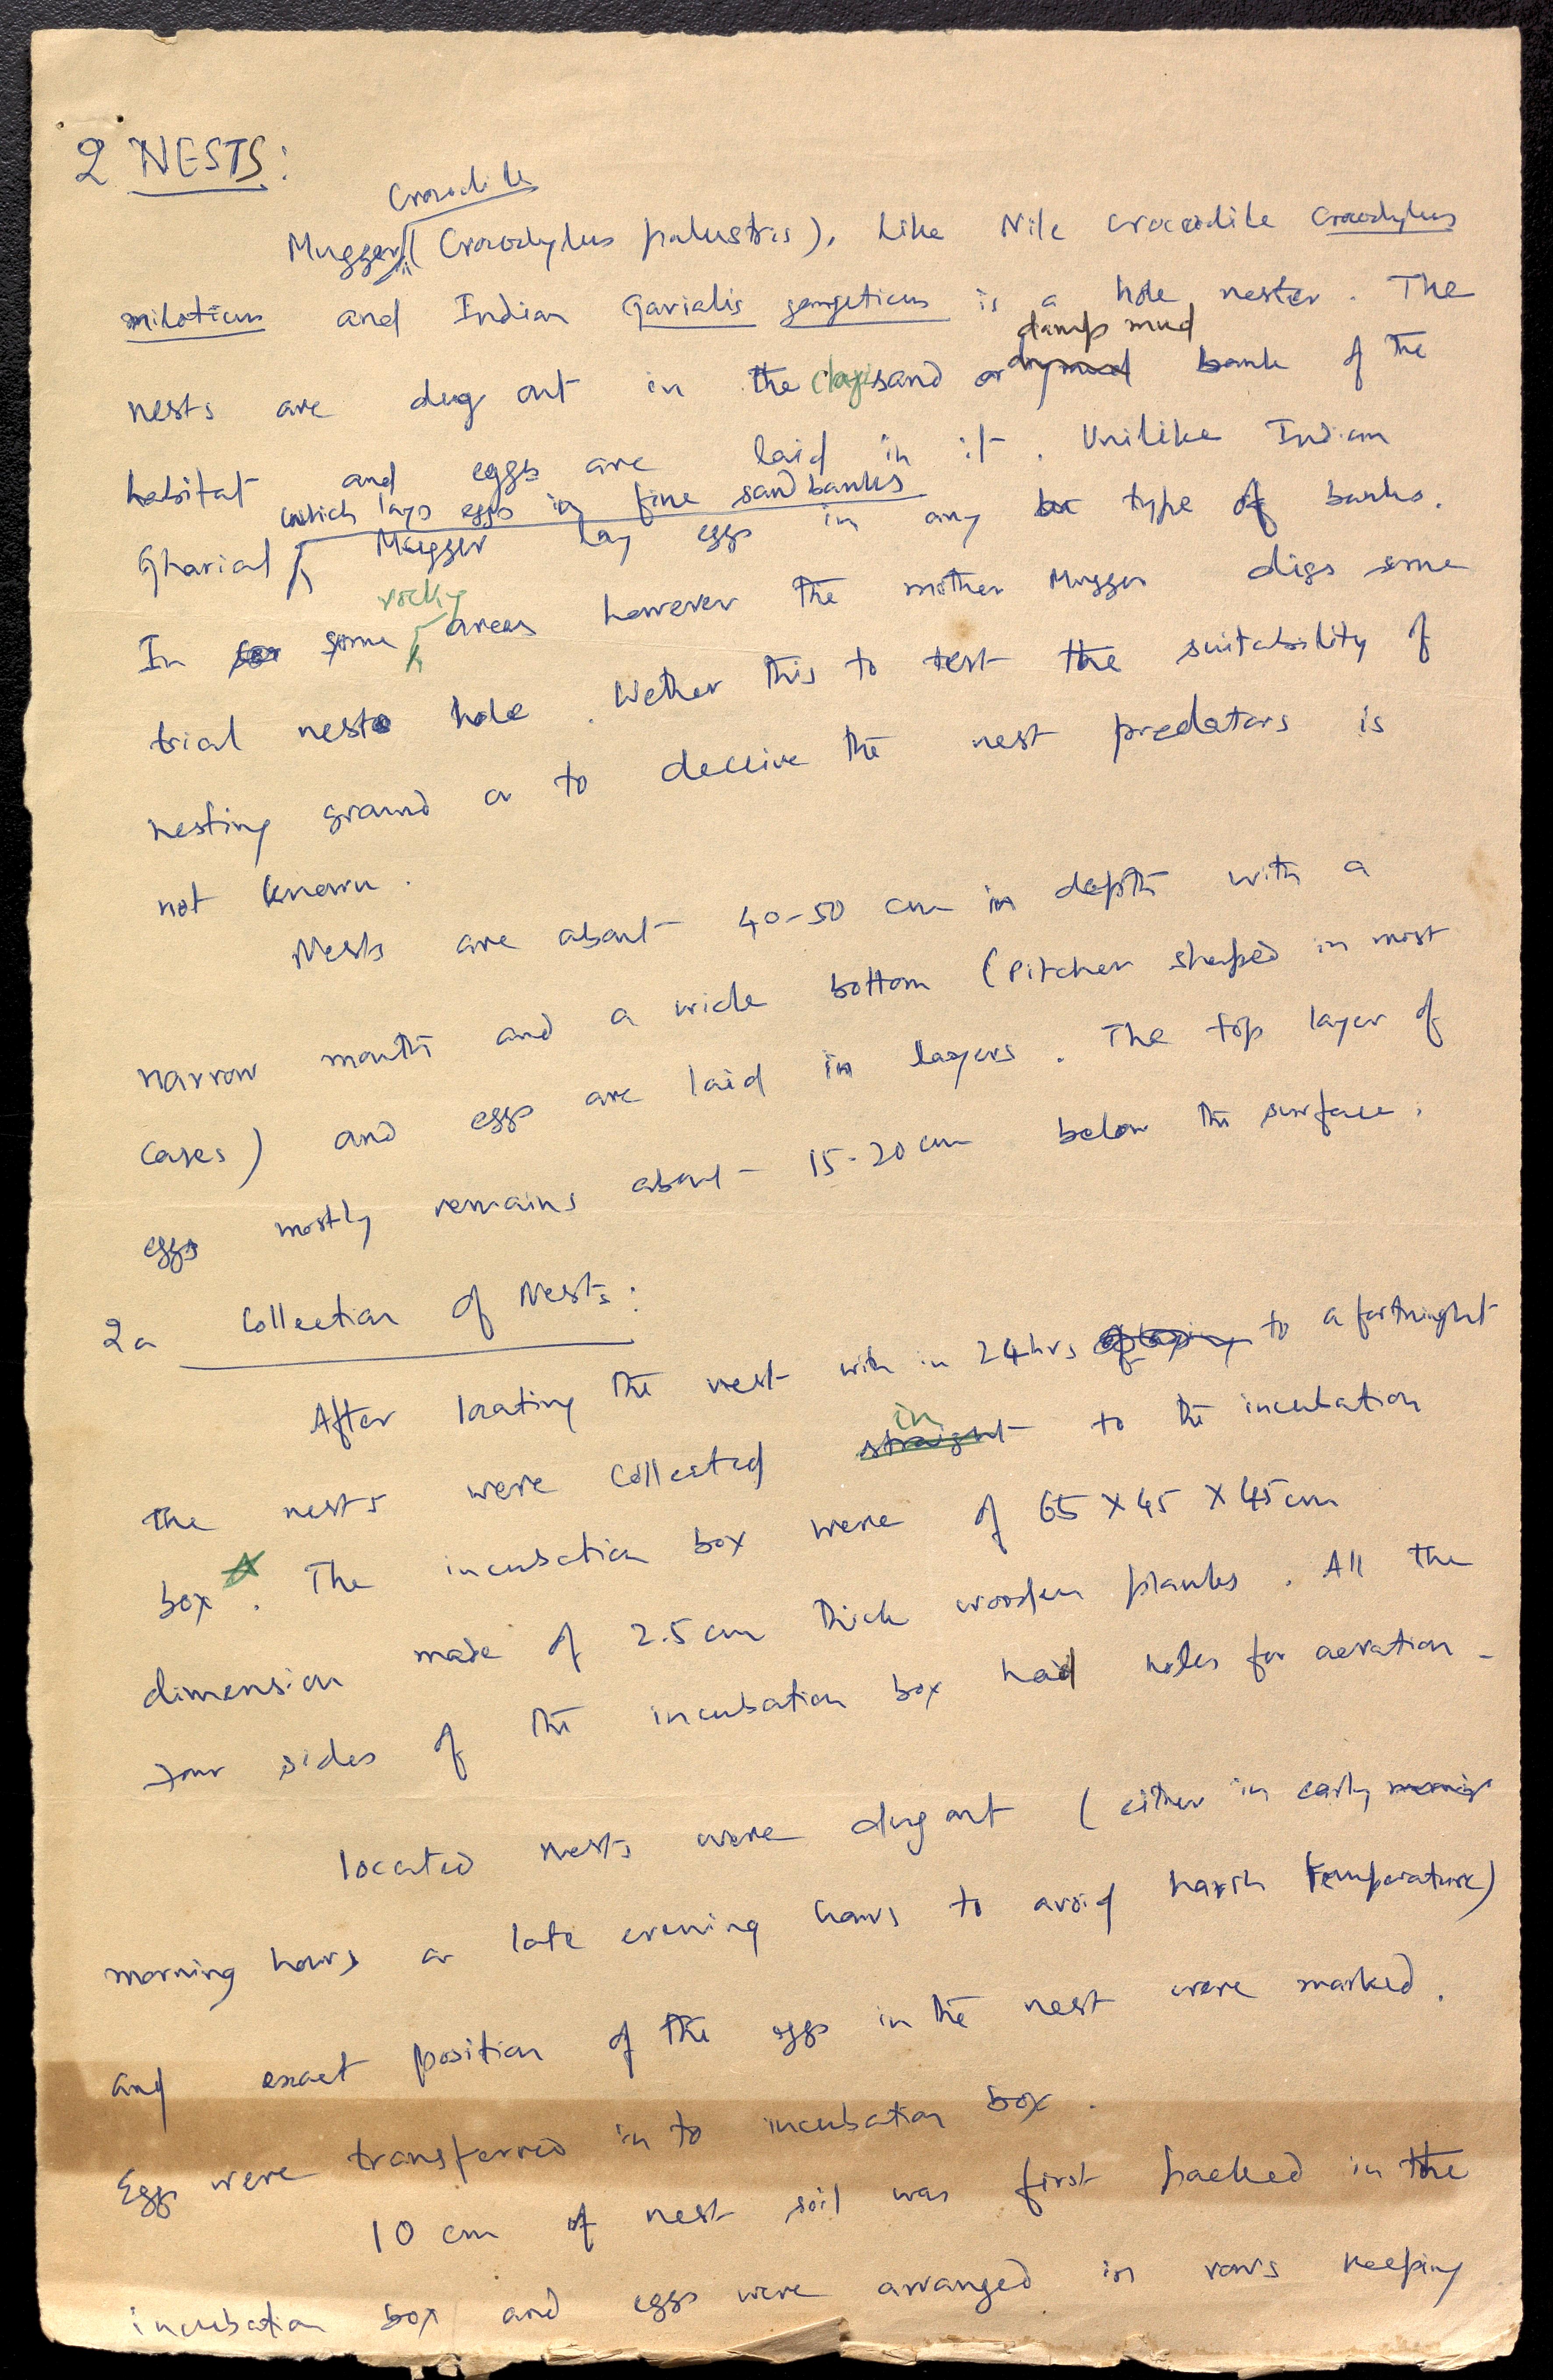 2 NESTS:
Crocodile
Mugger (Crocodylus palustris), like Nile crocodile Crocodylus
niloticus and Indian Gavialis gangeticus is a hole nester. The
damp mud
nests are dug out in the clay sand or dry mud bank of the
habitat and eggs are laid in it. Unilike Indian
which lays eggs in fine sand banks
Gharial Mugger lay eggs in any type of banks.
rocky
In some areas however the mother Mugger digs some
trial nest hole. Wether this to test the suitability of
nesting ground or to deceive the nest predators is
not known.
Nests are about 40-50 cm in depth with a
narrow mouth and a wide bottom (Pitcher shaped in most
cases) and eggs are laid in layers. The top layer of
eggs mostly remains about 15-20 cm below the surface.
2a Collection of Nests:
After locating the nest with in 24hrs of laying to a fortnight
in
the nests were collected straight to the incubation
box. The incubation box were of 65 X 45 X 45 cm
dimension made of 2.5 cm thick wooden planks. All the
four sides of the incubation box had holes for aeration-
located nests were dug out (either in early morning
morning hours or late evening hours to avoid harsh temperature)
and exact position of the eggs in the nest were marked.
Eggs were transferred in to incubation box.
10 cm of nest soil was first packed in the
incubation box and eggs were arranged in rows keeping